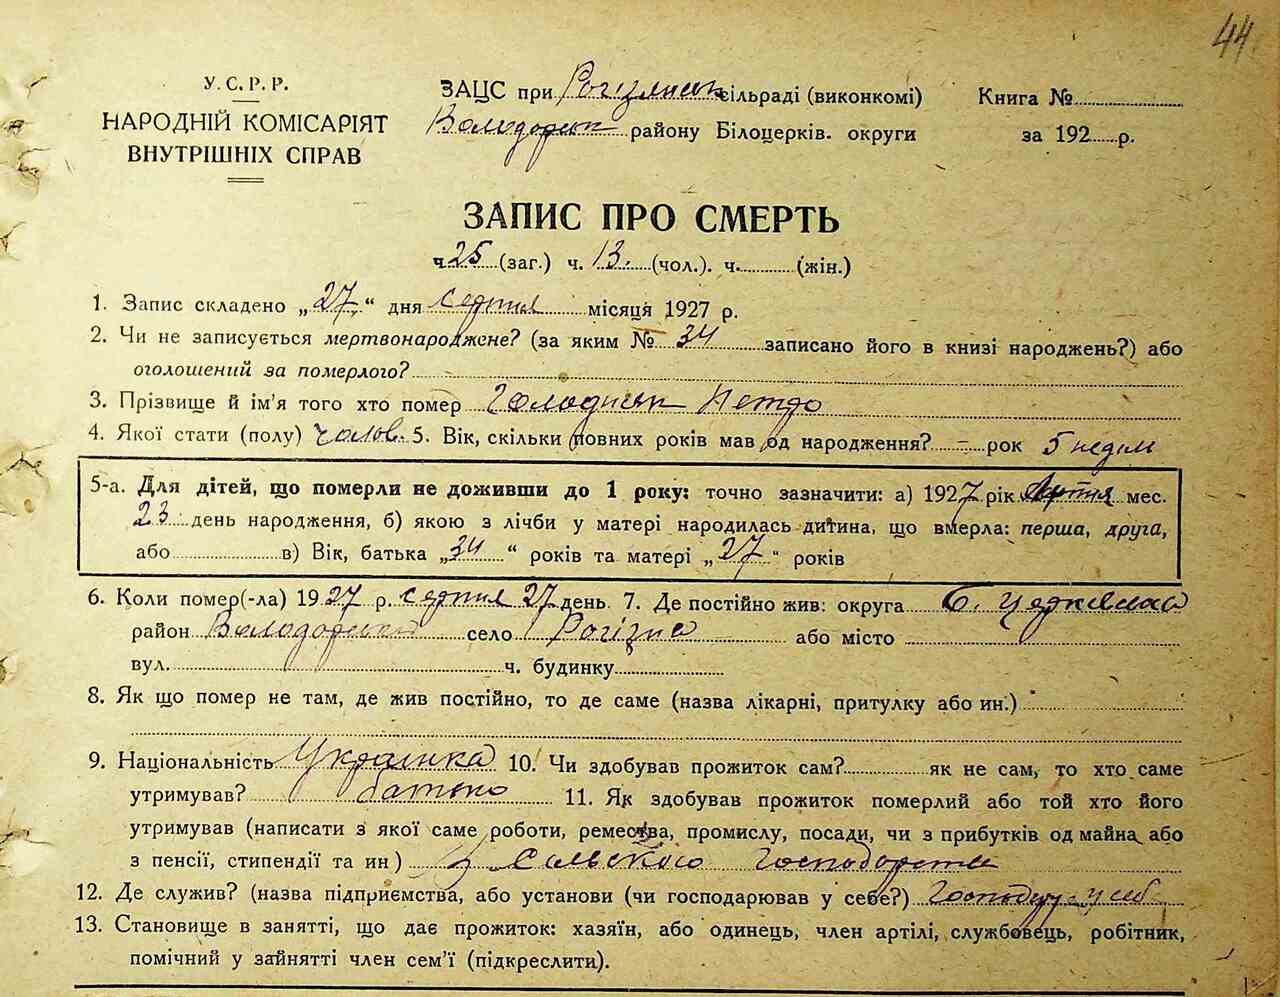 44
У. С. Р. Р.
НАРОДНІЙ КОМІСАРІЯТ
ВНУТРІШНІХ СПРАВ
ЗАЦС при Рогізнянск сільраді (виконкомі)
Володарськ району Білоцерків. округи
Книга №
за 192 р.
ЗАПИС ПРО СМЕРТЬ
ч. 25 (заг.) ч. 13. (чол.). ч. (жін.)
1. Запис складено „27“ дня серпня місяця 1927 р.
2. Чи не записується мертвонароджене? (за яким № 34 записано його в книзі народжень?) або
оголошений за померлого?
3. Прізвище й ім'я того хто помер Петро
4. Якої стати (полу) чолов. 5. Вік, скільки повних років мав од народження? - рок 5 неділ
5-а. Для дітей, що померли не доживши до 1 року: точно зазначити: а) 1927 рік мес.
23 день народження, б) якою з лічби у матері народилась дитина, що вмерла: перша, друга,
або в) Вік, батька „34“ років та матері „27“ років
6. Коли помер(-ла) 1927 р. серпня 27 день. 7. Де постійно жив: округа Б. Церківська
район Володарський село Рогізна або місто
вул. ч. будинку
8. Як що помер не там, де жив постійно, то де саме (назва лікарні, притулку або ин.)
9. Національність Українка 10. Чи здобував прожиток сам? як не сам, то хто саме
утримував? батько 11. Як здобував прожиток померлий або той хто його
утримував (написати з якої саме роботи, ремества, промислу, посади, чи з прибутків од майна або
з пенсії, стипендії та ин) З Сельского Господарства
12. Де служив? (назва підприємства, або установи (чи господарював у себе?) Господарює у себ
13. Становище в занятті, що дає прожиток: хазяїн, або одинець, член артілі, службовець, робітник,
помічний у зайнятті член сем'ї (підкреслити).